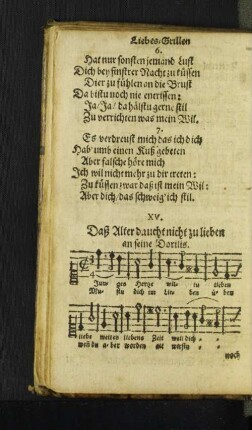 Liebes-Grillen
6.
Hat nur sonsten jemand Lust
Dich bey finstrer Nacht zu küssen
Dier zu fühlen an die Brust
Da bistu noch nie entrissen:
Ja/ Ja/ da hälstu gern: stil
Zu verrichten was mein Wil.
7.
Es verdreust mich das ich dich
Hab' umb einen Kuß gebeten
Aber falsche höre mich
Ich wil nicht mehr zu dir treten:
Zu küssen zwar daß ist mein Wil:
Aber dich/ das schweig' ich stil.
XV.
Daß Alter daucht nicht zu lieben
an seine Dorilis.
Jun- ges Hertze zu lieben
dich im Lie- ben ü- ben
liebe weil es liebens Zeit weil dich
weil du a- ber worden alt wirstu
noch